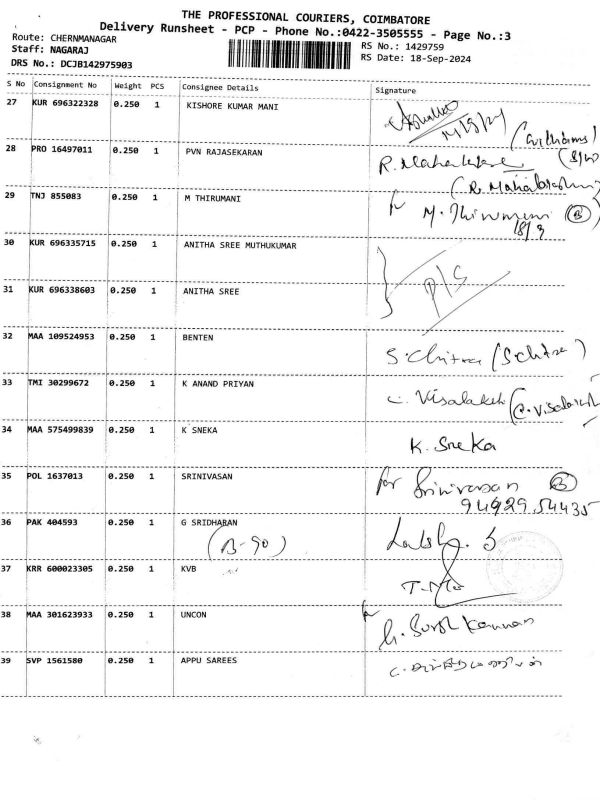 THE PROFESSIONAL COURIERS, COIMBATORE
Delivery Runsheet - PCP - Phone No.:0422-3505555 - Page No.:3
Route: CHERNMANAGAR
RS No.: 1429759
Staff: NAGARAJ
RS Date: 18-Sep-2024
DRS No.: DCJB142975903
S No Consignment No Weight PCS Consignee Details Signature
27 KUR 696322328 0.250 1 KISHORE KUMAR MANI
28 PRO 16497011 0.250 1 PVN RAJASEKARAN
29 TNJ 855083 0.250 1 M THIRUMANI
30 KUR 696335715 0.250 1 ANITHA SREE MUTHUKUMAR
31 KUR 696338603 0.250 1 ANITHA SREE
32 MAA 109524953 0.250 1 BENTEN
S. Chitra (S chitra)
33 TMI 30299672 0.250 1 K ANAND PRIYAN
C. Visalakshi
34 MAA 575499839 0.250 1 K SNEKA
K. Sneka
35 POL 1637013 0.250 1 SRINIVASAN for Srinivasan
94929 54435
36 PAK 404593 0.250 1 G SRIDHARAN
(B-90)
37 KRR 600023305 0.250 1 KVB
38 MAA 301623933 0.250 1 UNCON
39 SVP 1561580 0.250 1 APPU SAREES